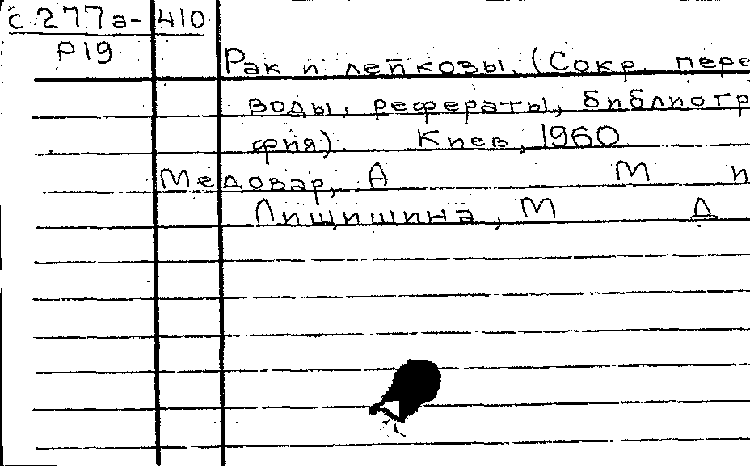 с 277а- 410
Р19
Рак и лейкозы. (Сокр. пере
воды, рефераты, библиогр
фия). Киев, 1960
Медовар, А М и
Лищишина, М Д